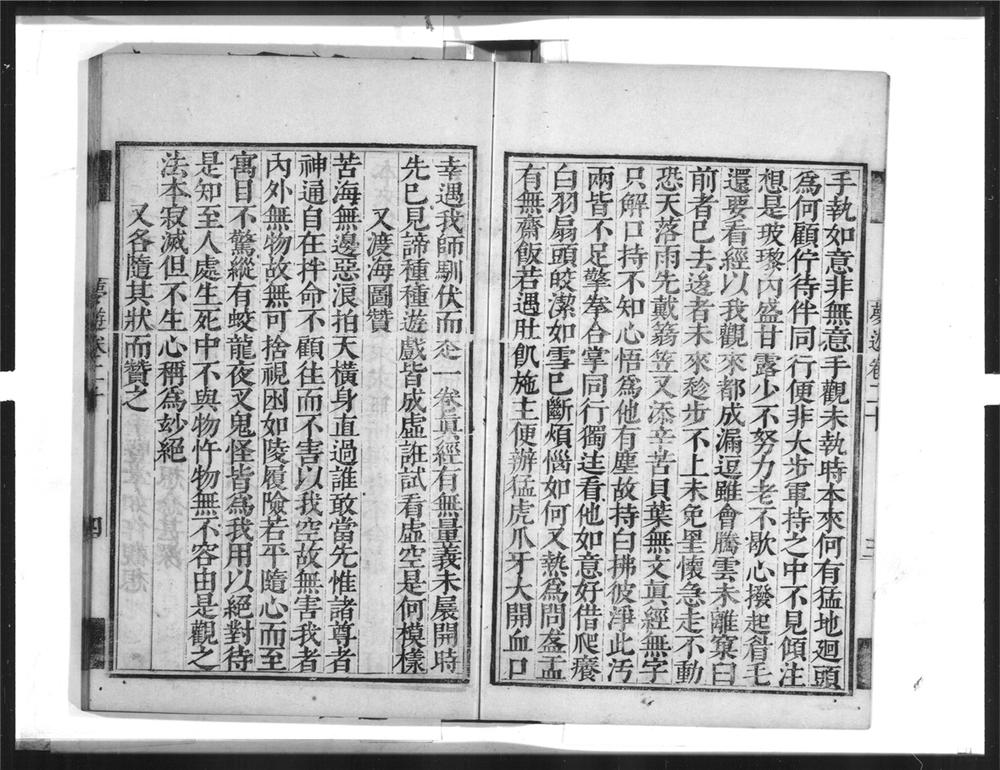 手執如意非無意手觀未執時本來何有猛地廻頭
為何顧佇待伴同行便非大步軍持之中不見傾注
想是玻瓈內盛甘露少不努力老不歇心撥起眉毛
還要看經以我觀來都成漏逗雖會騰雲未離窠臼
前者已去後者未來趂步不上未免里懷急走不動
恐天落雨先戴篛笠又添辛苦貝葉無文真經無字
只解口持不知心悟為他有塵故持白拂彼淨此汚
兩皆不足擎拳合掌同行獨迬看他如意好借爬癢
白羽扇頭皎潔如雪已斷煩惱如何又熱為問盋盂
有無齋飯若遇肚飢施主便辦猛虎爪牙大開血口
夢遊卷二十
三
幸遇我師馴伏而走一卷真經有無量義未展開時
先已見諦種種遊戲皆成虛誑試看虛空是何模樣
又渡海圖贊
苦海無邊惡浪拍天橫身直過誰敢當先惟諸尊者
神通自在拌命不顧往而不害以我空故無害我者
內外無物故無可捨視困如陵履險若平隨心而至
寓目不驚縱有蛟龍夜叉鬼怪皆為我用以絕對待
是知至人處生死中不與物忤物無不容由是觀之
法本寂滅但不生心稱為妙絕
又各隨其狀而贊之
夢遊卷二十
四